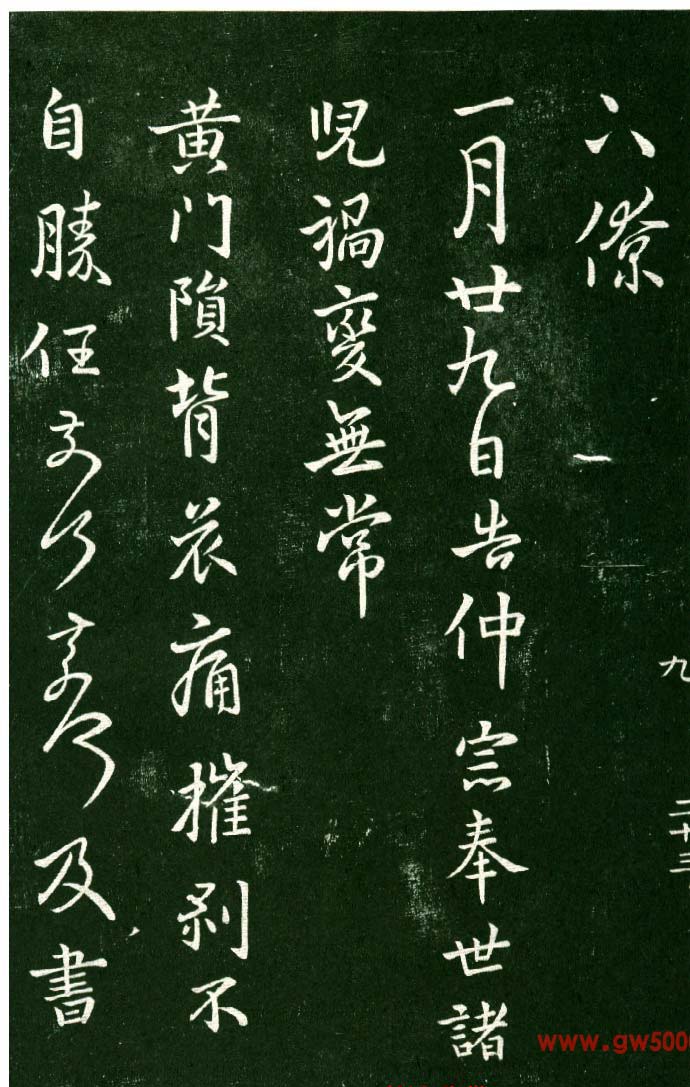 九 二十三
六僚
一月廿九日告仲宗奉世諸
児禍变無常
黄门隕背哀痛摧剥不
自勝任奈何奈何及書
www.gw500